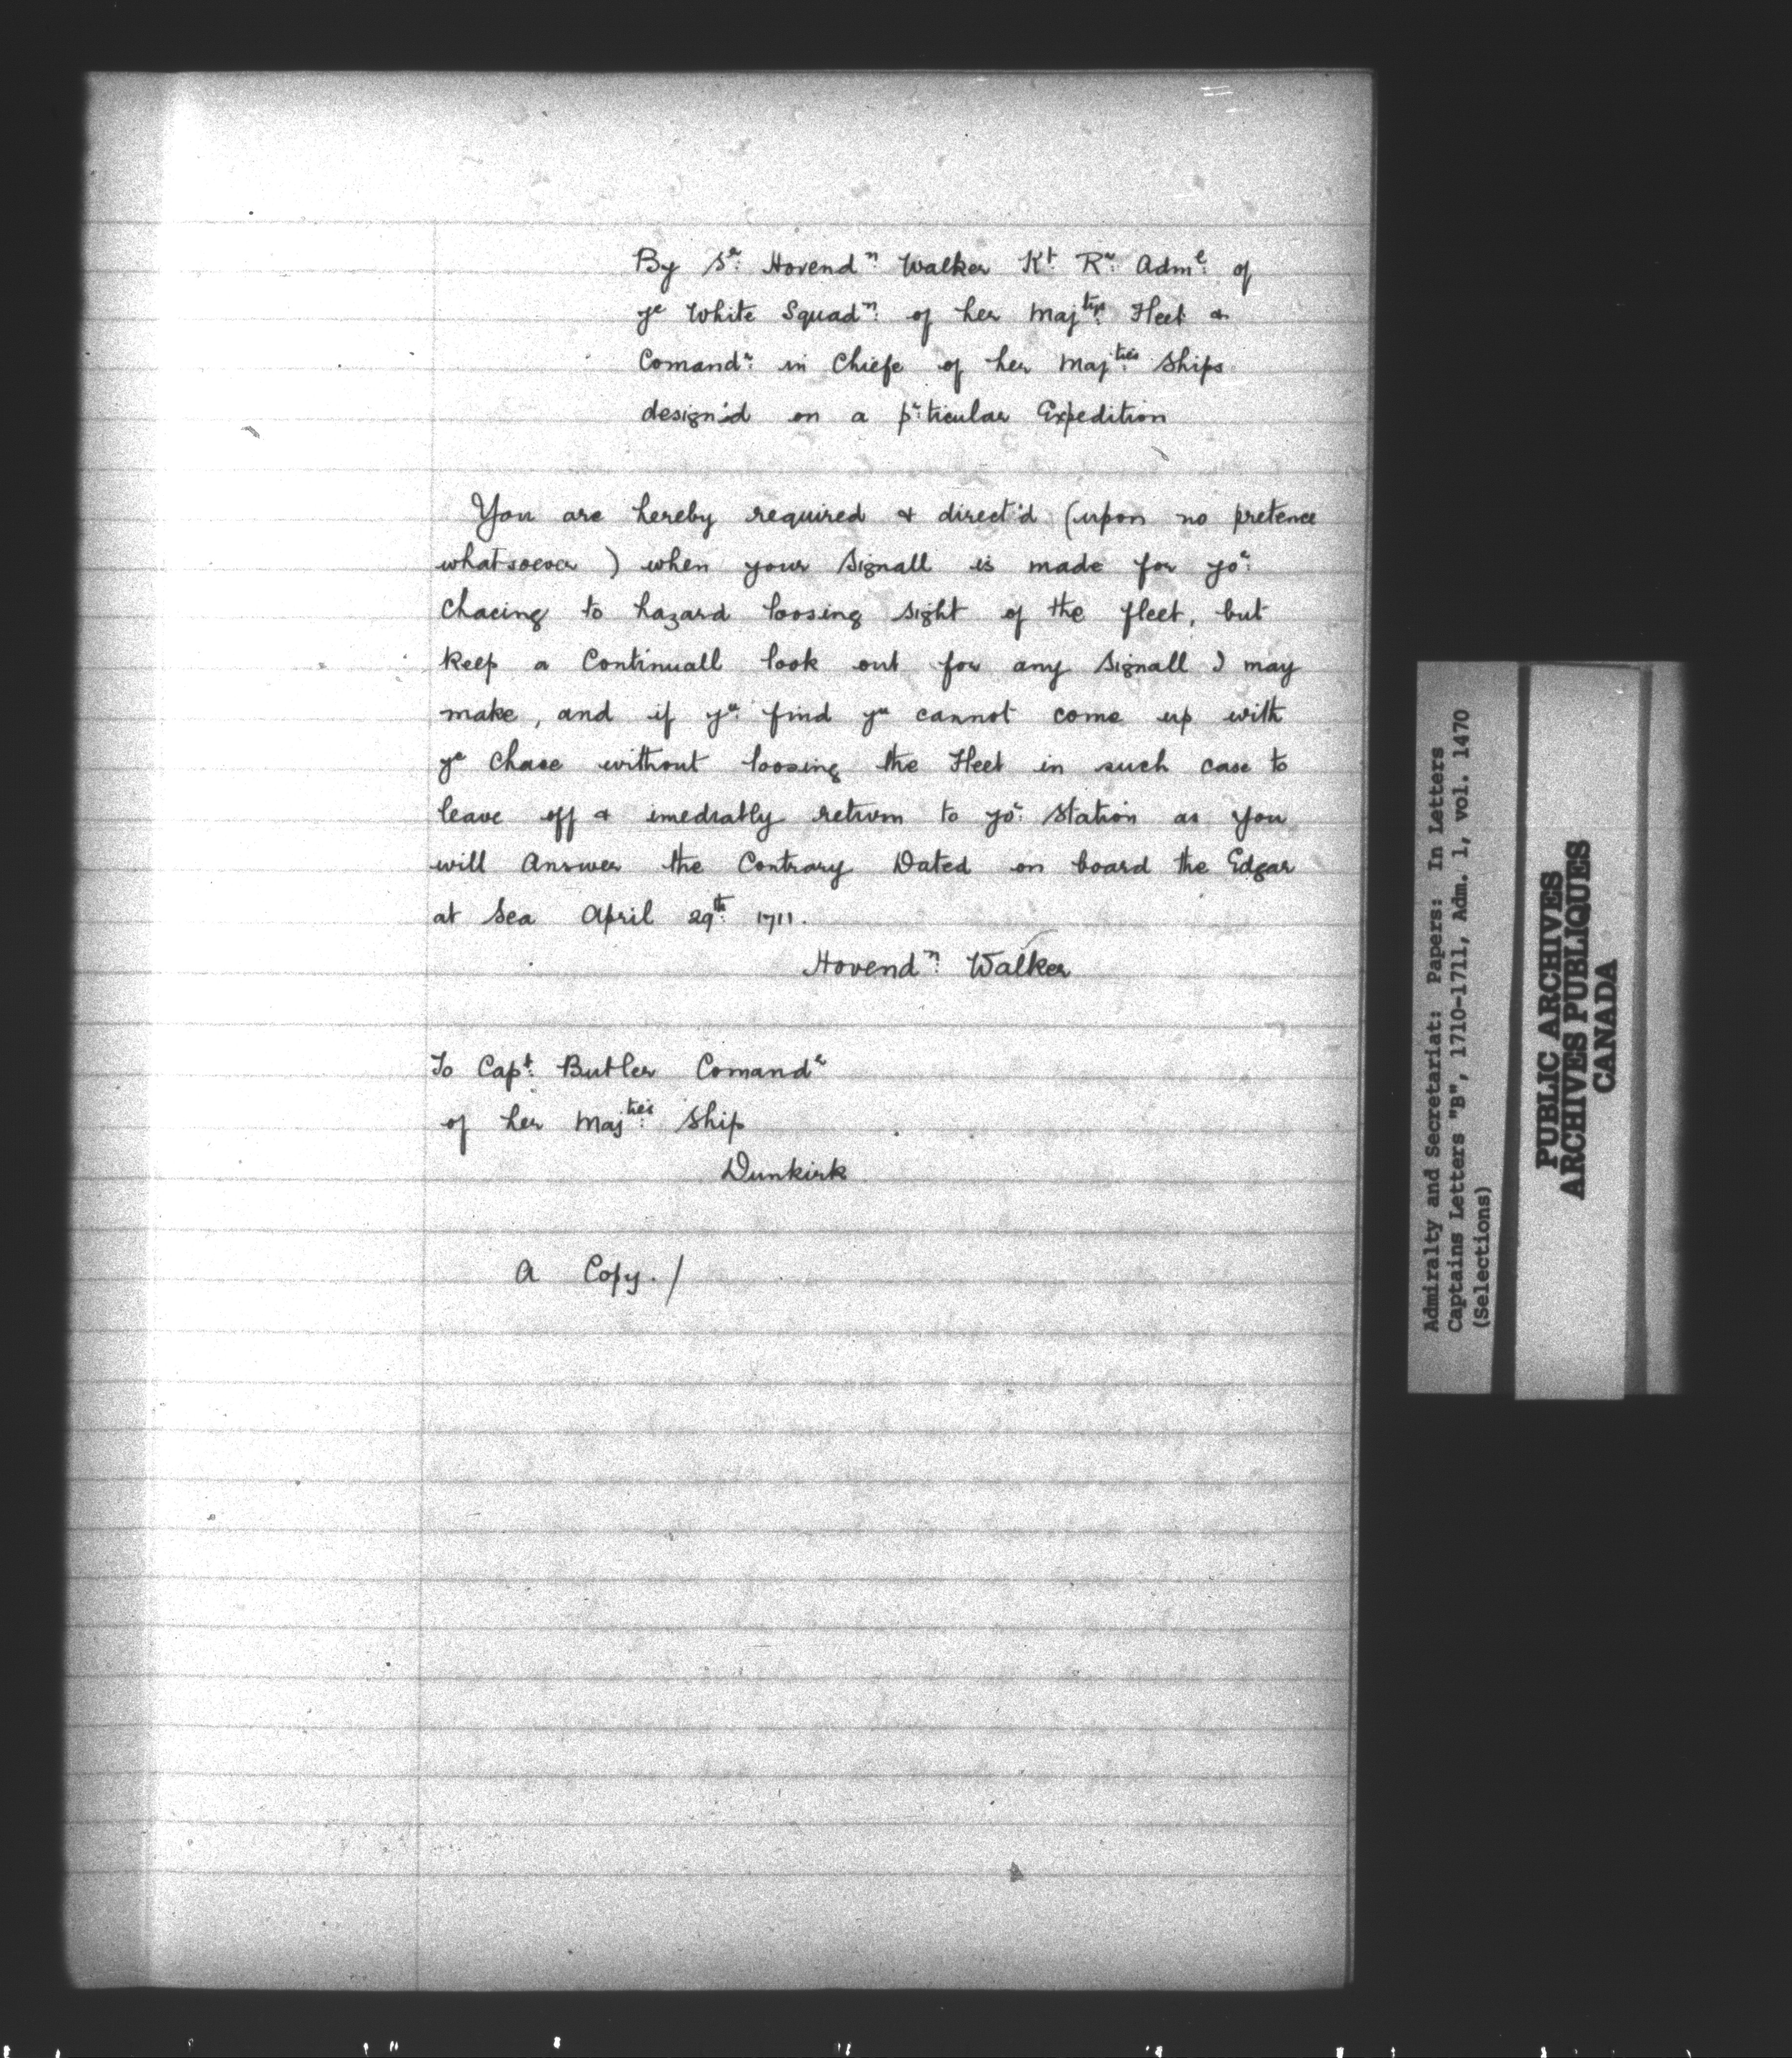 By Sr: Hovendn: Walker Kt: Rr: Adml: of
ye White Squadn: of her Majties: Fleet &
Comandr: in Chiefe of her Majties: Ships
design'd on a pr:ticular Expedition
You are hereby required & direct'd (upon no pretence
whatsoever) when your Signall is made for yor:
Chacing to hazard loosing sight of the fleet, but
keep a Continuall look out for any Signall I may
make, and if yu: find yu cannot come up with
ye Chase without loosing the Fleet in such case to
leave off & imediatly return to yor: Station as you
will Answer the Contrary Dated on board the Edgar
at Sea April 29th: 1711.
Hovendn: Walker
To Capt: Butler Comandr
of her Majties: Ship
Dunkirk
A Copy./
Admiralty and Secretariat: Papers: In Letters
Captains Letters "B", 1710-1711, Adm. 1, vol. 1470
(Selections)
PUBLIC ARCHIVES
ARCHIVES PUBLIQUES
CANADA